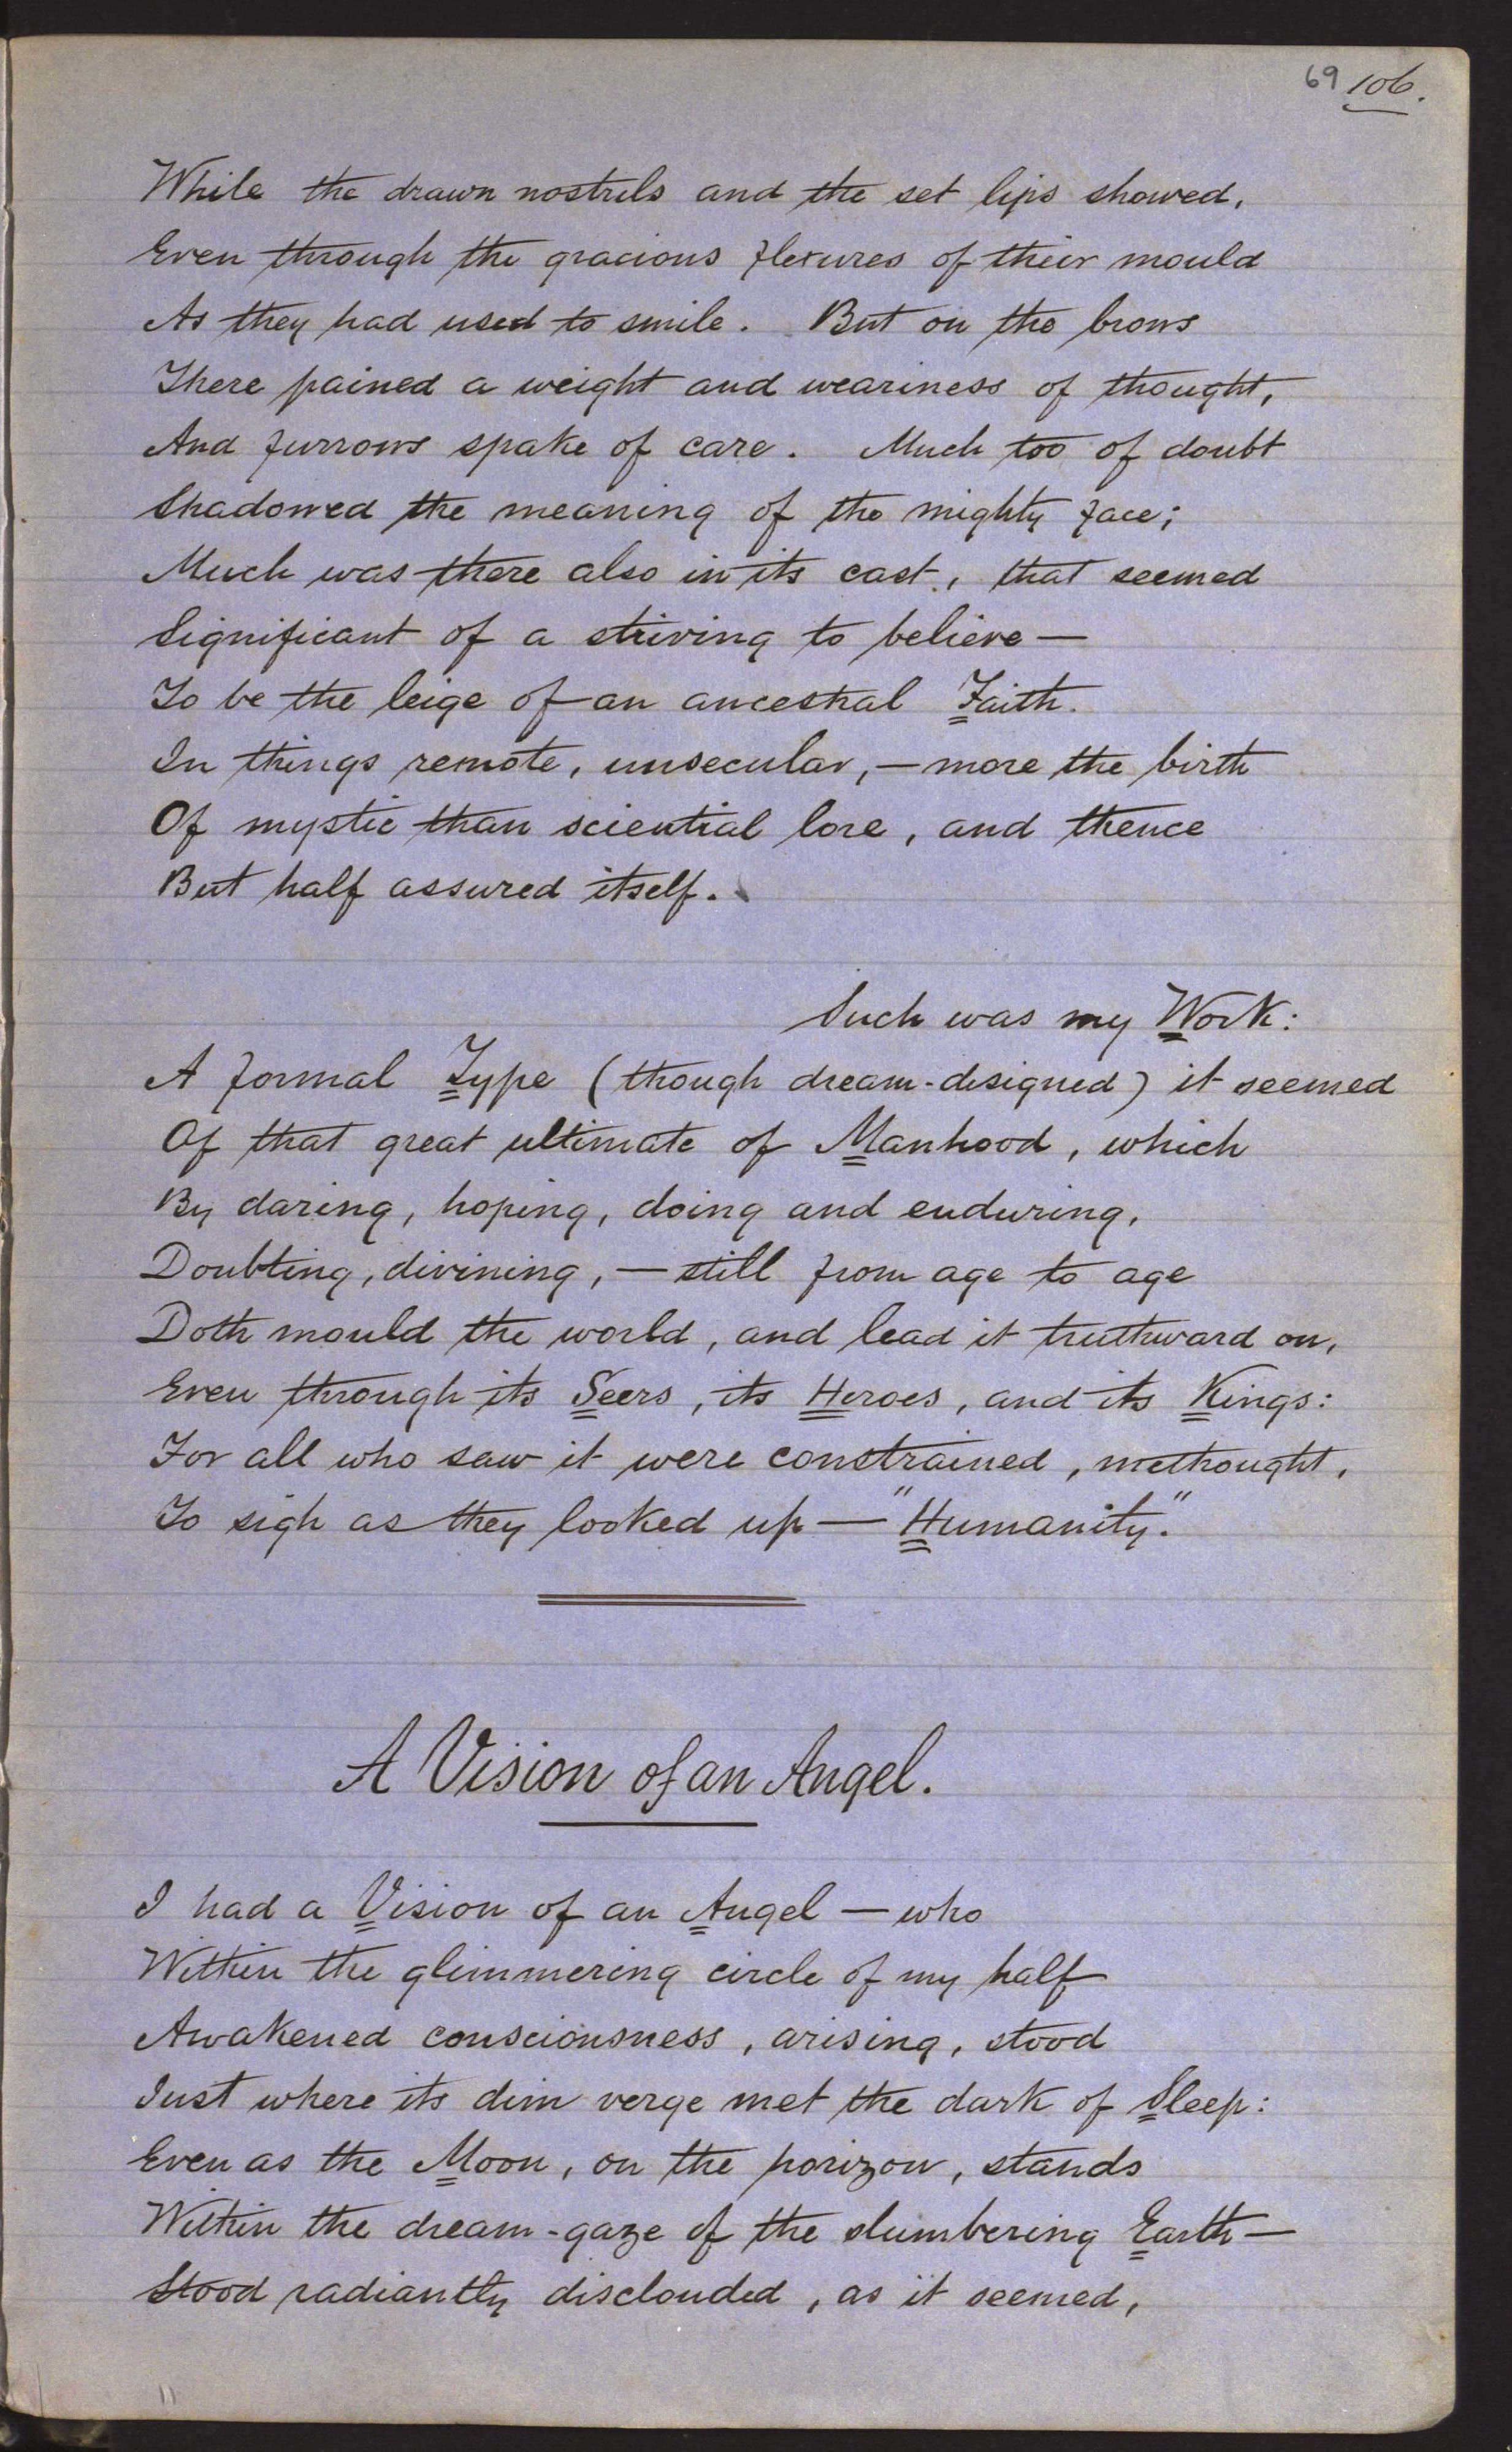 69 106.
While the drawn nostrils and the set lips showed,
Even through the gracious flexures of their mould
As they had used to smile. But on the brows
There pained a weight and weariness of thought,
And furrows spake of care. Much too of doubt
Shadowed the meaning of the mighty face;
Much was there also in its cast, that seemed
Significant of a striving to believe —
To be the leige of an ancestral Faith.
In things remote, unsecular, — more the birth
Of mystic than sciential lore, and thence
But half assured itself.
Such was my Work:
A formal Type (though dream-designed) it seemed
Of that great ultimate of Manhood, which
By daring, hoping, doing and enduring,
Doubting, divining, — still from age to age
Doth mould the world, and lead it truthward on,
Even through its Seers, its Heroes, and its Kings:
For all who saw it were constrained, methought,
To sigh as they looked up — "Humanity."
A Vision of an Angel.
I had a Vision of an Angel — who
Within the glimmering circle of my half
Awakened consciousness, arising, stood
Just where its dim verge met the dark of Sleep:
Even as the Moon, on the horizon, stands
Within the dream-gaze of the slumbering Earth —
Stood radiantly disclouded, as it seemed,